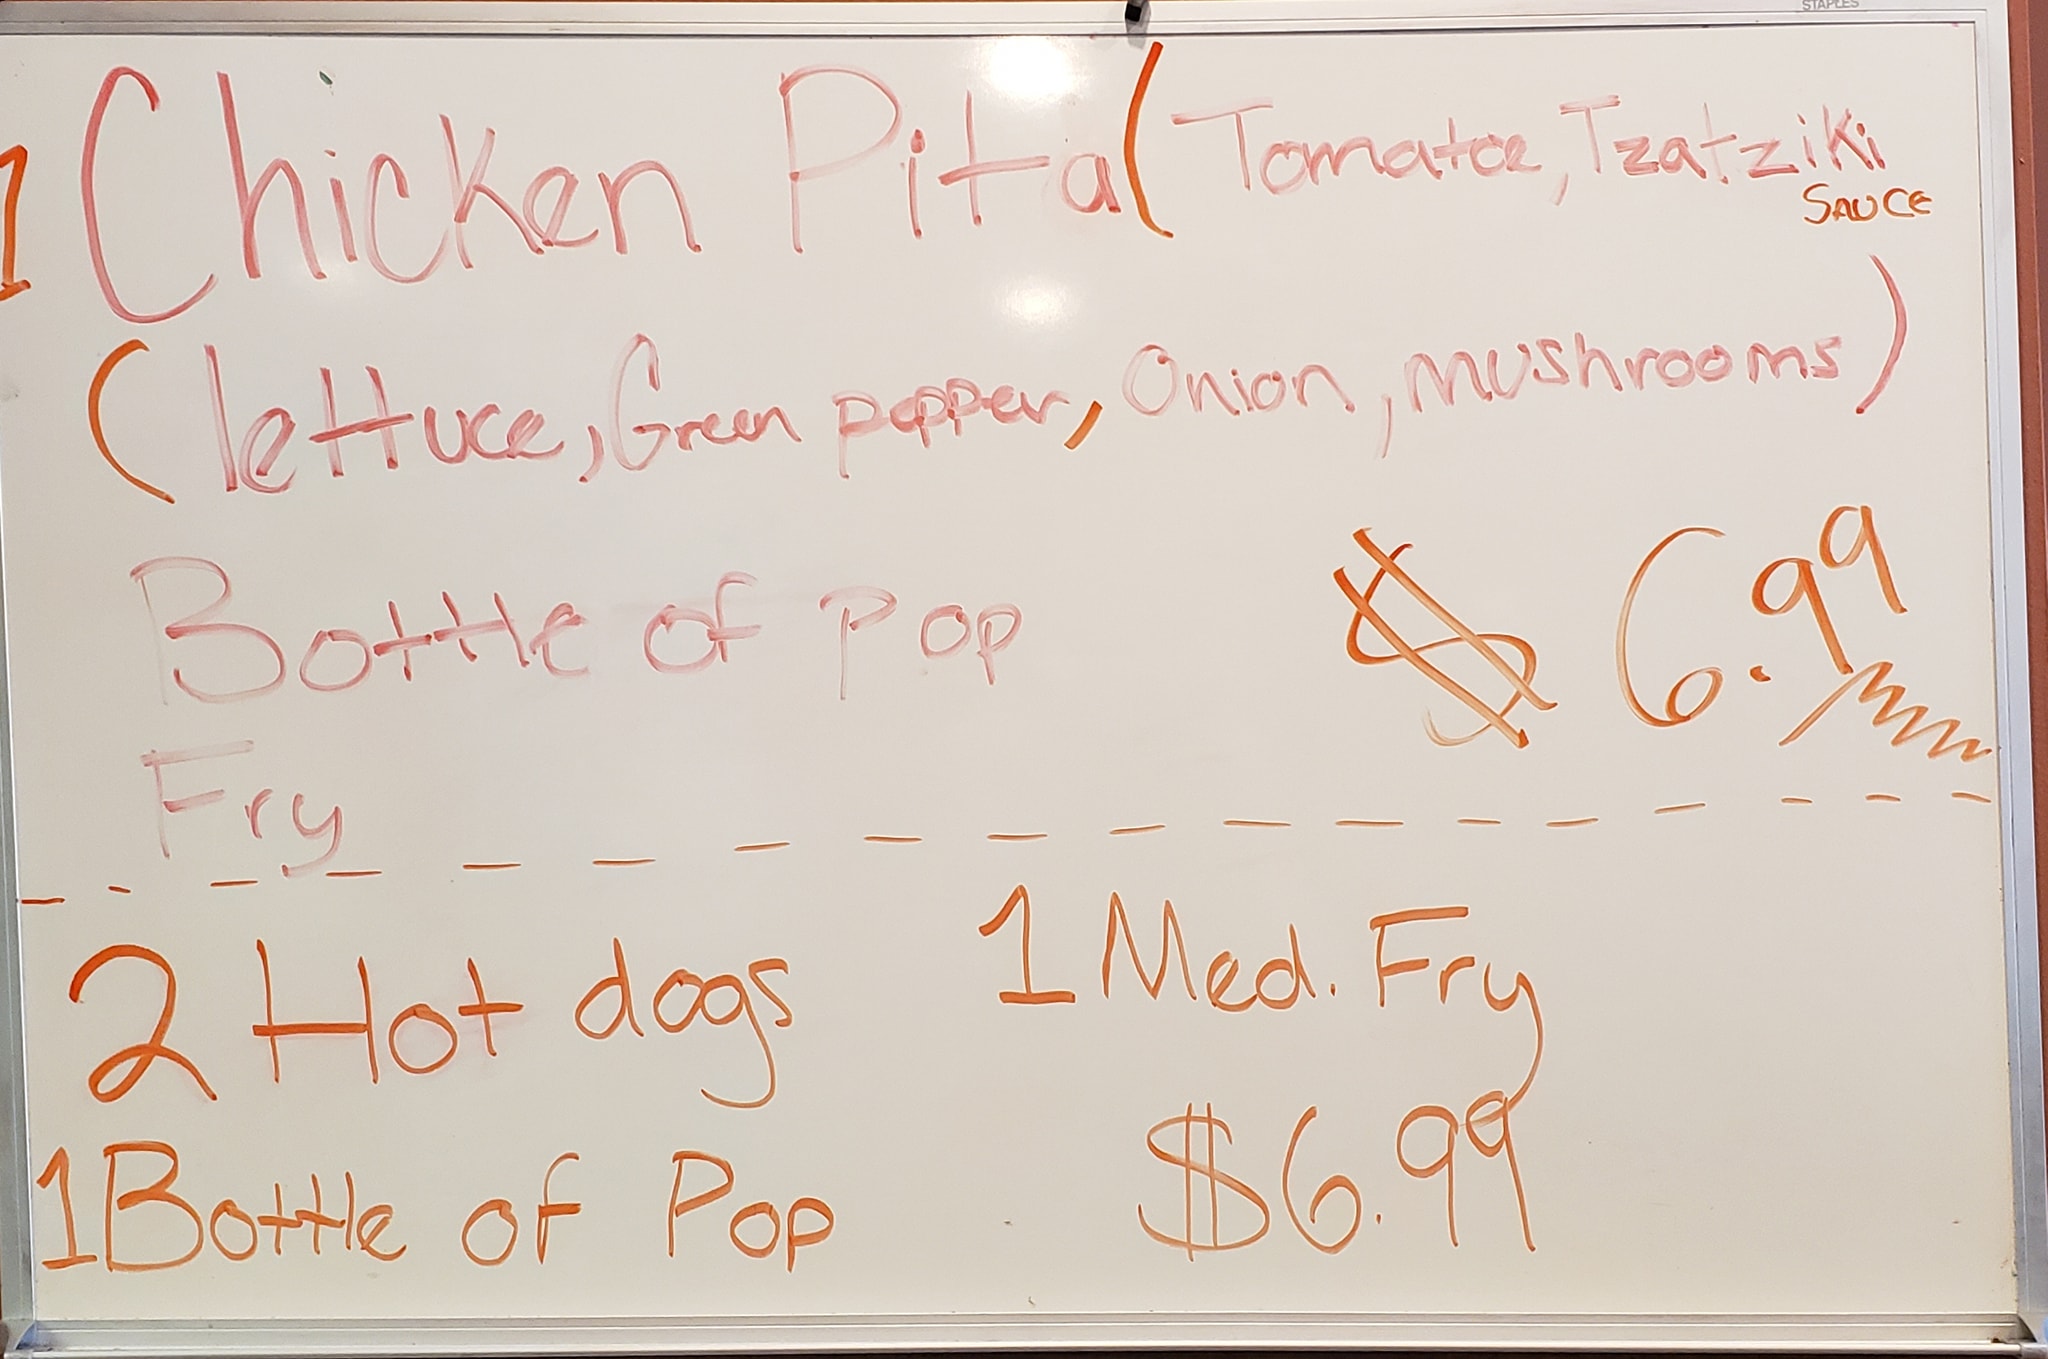 STAPLES
1 Chicken Pita (Tomatoe, Tzatziki
SAUCE
(lettuce, Green pepper, Onion, mushrooms)
Bottle of Pop $6.99
Fry
2 Hot dogs 1 Med. Fry
1 Bottle of Pop $6.99